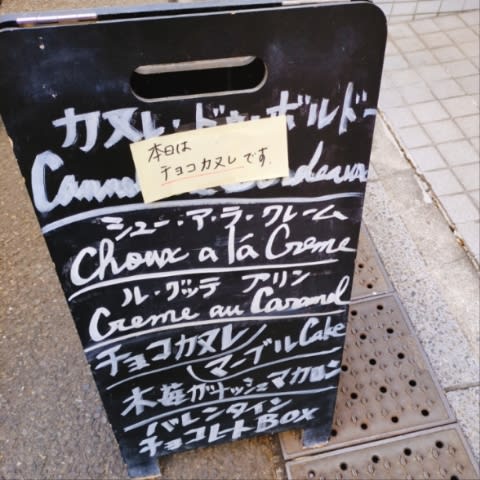 カヌレ・ド・ボルドー
本日は
チョコカヌレです。
Cann deaux
シュー・ア・ラ・クレーム
Choux a lá Creme
ル・グッテ アリン
Creme au Caramel
チョコカヌレ
マーブルCake
木苺ガナッシュマカロン
バレンタイン
チョコレートBOX